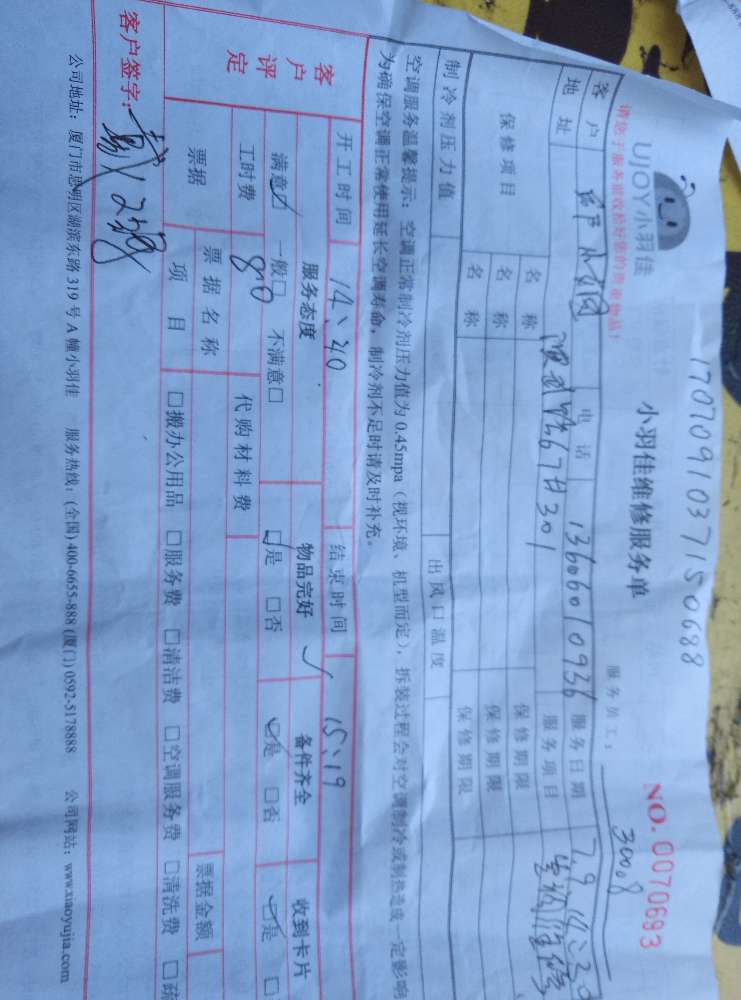 1707091037150688
UJOY小羽佳
小羽佳维修服务单
NO. 0070693
请您于服务前收拾好您的贵重物品!
服务员工: 30008
客户 电话 13606010936 服务日期 7.9 14:30
地址 67# 301 服务项目 维修
保修项目 名称 保修期限
名称 保修期限
名称 保修期限
制冷剂压力值 出风口温度
空调服务温馨提示:空调正常制冷剂压力值为 0.45mpa(视环境、机型而定),拆装过程会对空调制冷或制热造成一定影响
为确保空调正常使用延长空调寿命,制冷剂不足时请及时补充。
开工时间 14:40 结束时间 15:19
客户评定 服务态度 物品完好 备件齐全 收到卡片
满意☑ 一般□ 不满意□ ☑是 □否 ☑是 □否 ☑是 □
工时费 80 代购材料费
票据 票据名称 票据金额
项目 □搬办公用品 □服务费 □清洁费 □空调服务费 □清洗费 □疏
客户签字:
公司地址:厦门市思明区湖滨东路 319 号 A 幢小羽佳 服务热线:(全国) 400-6655-888 (厦门) 0592-5178888 公司网站:www.xiaoyujia.com